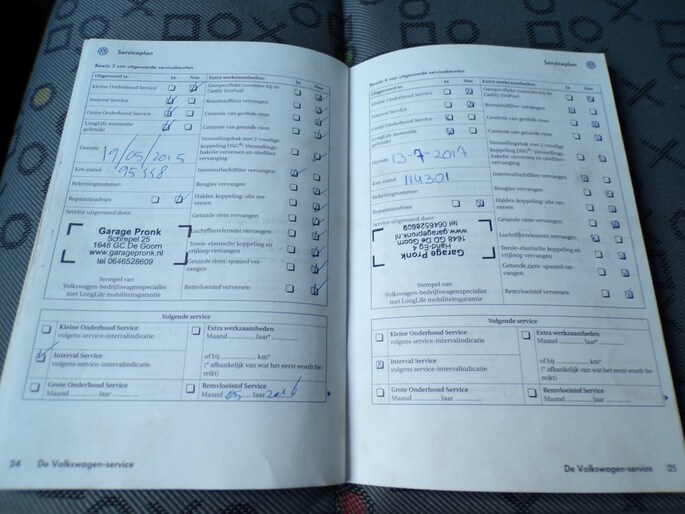 Serviceplan
Bewijs 5 van uitgevoerde servicebeurten
Uitgevoerd is: Ja Nee
Kleine Onderhoud Service
Interval Service
Grote Onderhoud Service
LongLife motorolie
gebruikt
Datum:
19/05/2015
Km-stand:
95448
Rekeningnummer:
Reparatieadvies
Service uitgevoerd door:
Garage Pronk
Schrepel 25
1648 GC De Goorn
www.garagepronk.nl
tel 0646528609
Stempel van
Volkswagen-bedrijfswagenspecialist
met LongLife mobiliteitsgarantie
Extra werkzaamheden: Ja Nee
Gasspecifieke controles bij de
Caddy EcoFuel
Brandstoffilter vervangen
Controle van geribde riem
Controle van getande riem
Versnellingsbak met 2-voudige
koppeling DSG®: Versnellings-
bakolie verversen en oliefilter-
vervanging
Interieurluchtfilter vervangen
Bougies vervangen
Haldex-koppeling: olie ver-
versen
Getande riem vervangen
Luchtfilterelement vervangen
Torsie-elastische koppeling en
vrijloop vervangen
Getande riem: spanrol ver-
vangen
Remvloeistof verversen
Volgende service
Kleine Onderhoud Service
volgens service-intervalindicatie
Interval Service
volgens service-intervalindicatie
Grote Onderhoud Service
Extra werkzaamheden
Maand .......... Jaar*..........
of bij .......... km*
(* afhankelijk van wat het eerst wordt be-
reikt)
Remvloeistof Service
Maand 05 Jaar 2016
24 De Volkswagen-service
Serviceplan
Bewijs 6 van uitgevoerde servicebeurten
Uitgevoerd is: Ja Nee
Kleine Onderhoud Service
Interval Service
Grote Onderhoud Service
LongLife motorolie
gebruikt
Datum:
13-7-2017
Km-stand:
114301
Rekeningnummer:
Reparatieadvies
Service uitgevoerd door:
Garage Pronk
1648 GD De Goorn
www.garagepronk.nl
tel 0646528609
Stempel van
Volkswagen-bedrijfswagenspecialist
met LongLife mobiliteitsgarantie
Extra werkzaamheden: Ja Nee
Gasspecifieke controles bij de
Caddy EcoFuel
Brandstoffilter vervangen
Controle van geribde riem
Controle van getande riem
Versnellingsbak met 2-voudige
koppeling DSG®: Versnellings-
bakolie verversen en oliefilter-
vervanging
Interieurluchtfilter vervangen
Bougies vervangen
Haldex-koppeling: olie ver-
versen
Getande riem vervangen
Luchtfilterelement vervangen
Torsie-elastische koppeling en
vrijloop vervangen
Getande riem: spanrol ver-
vangen
Remvloeistof verversen
Volgende service
Kleine Onderhoud Service
volgens service-intervalindicatie
Interval Service
volgens service-intervalindicatie
Grote Onderhoud Service
Maand .......... Jaar ..........
Extra werkzaamheden
Maand .......... Jaar*..........
of bij .......... km*
(* afhankelijk van wat het eerst wordt be-
reikt)
Remvloeistof Service
Maand .......... Jaar ..........
De Volkswagen-service 25